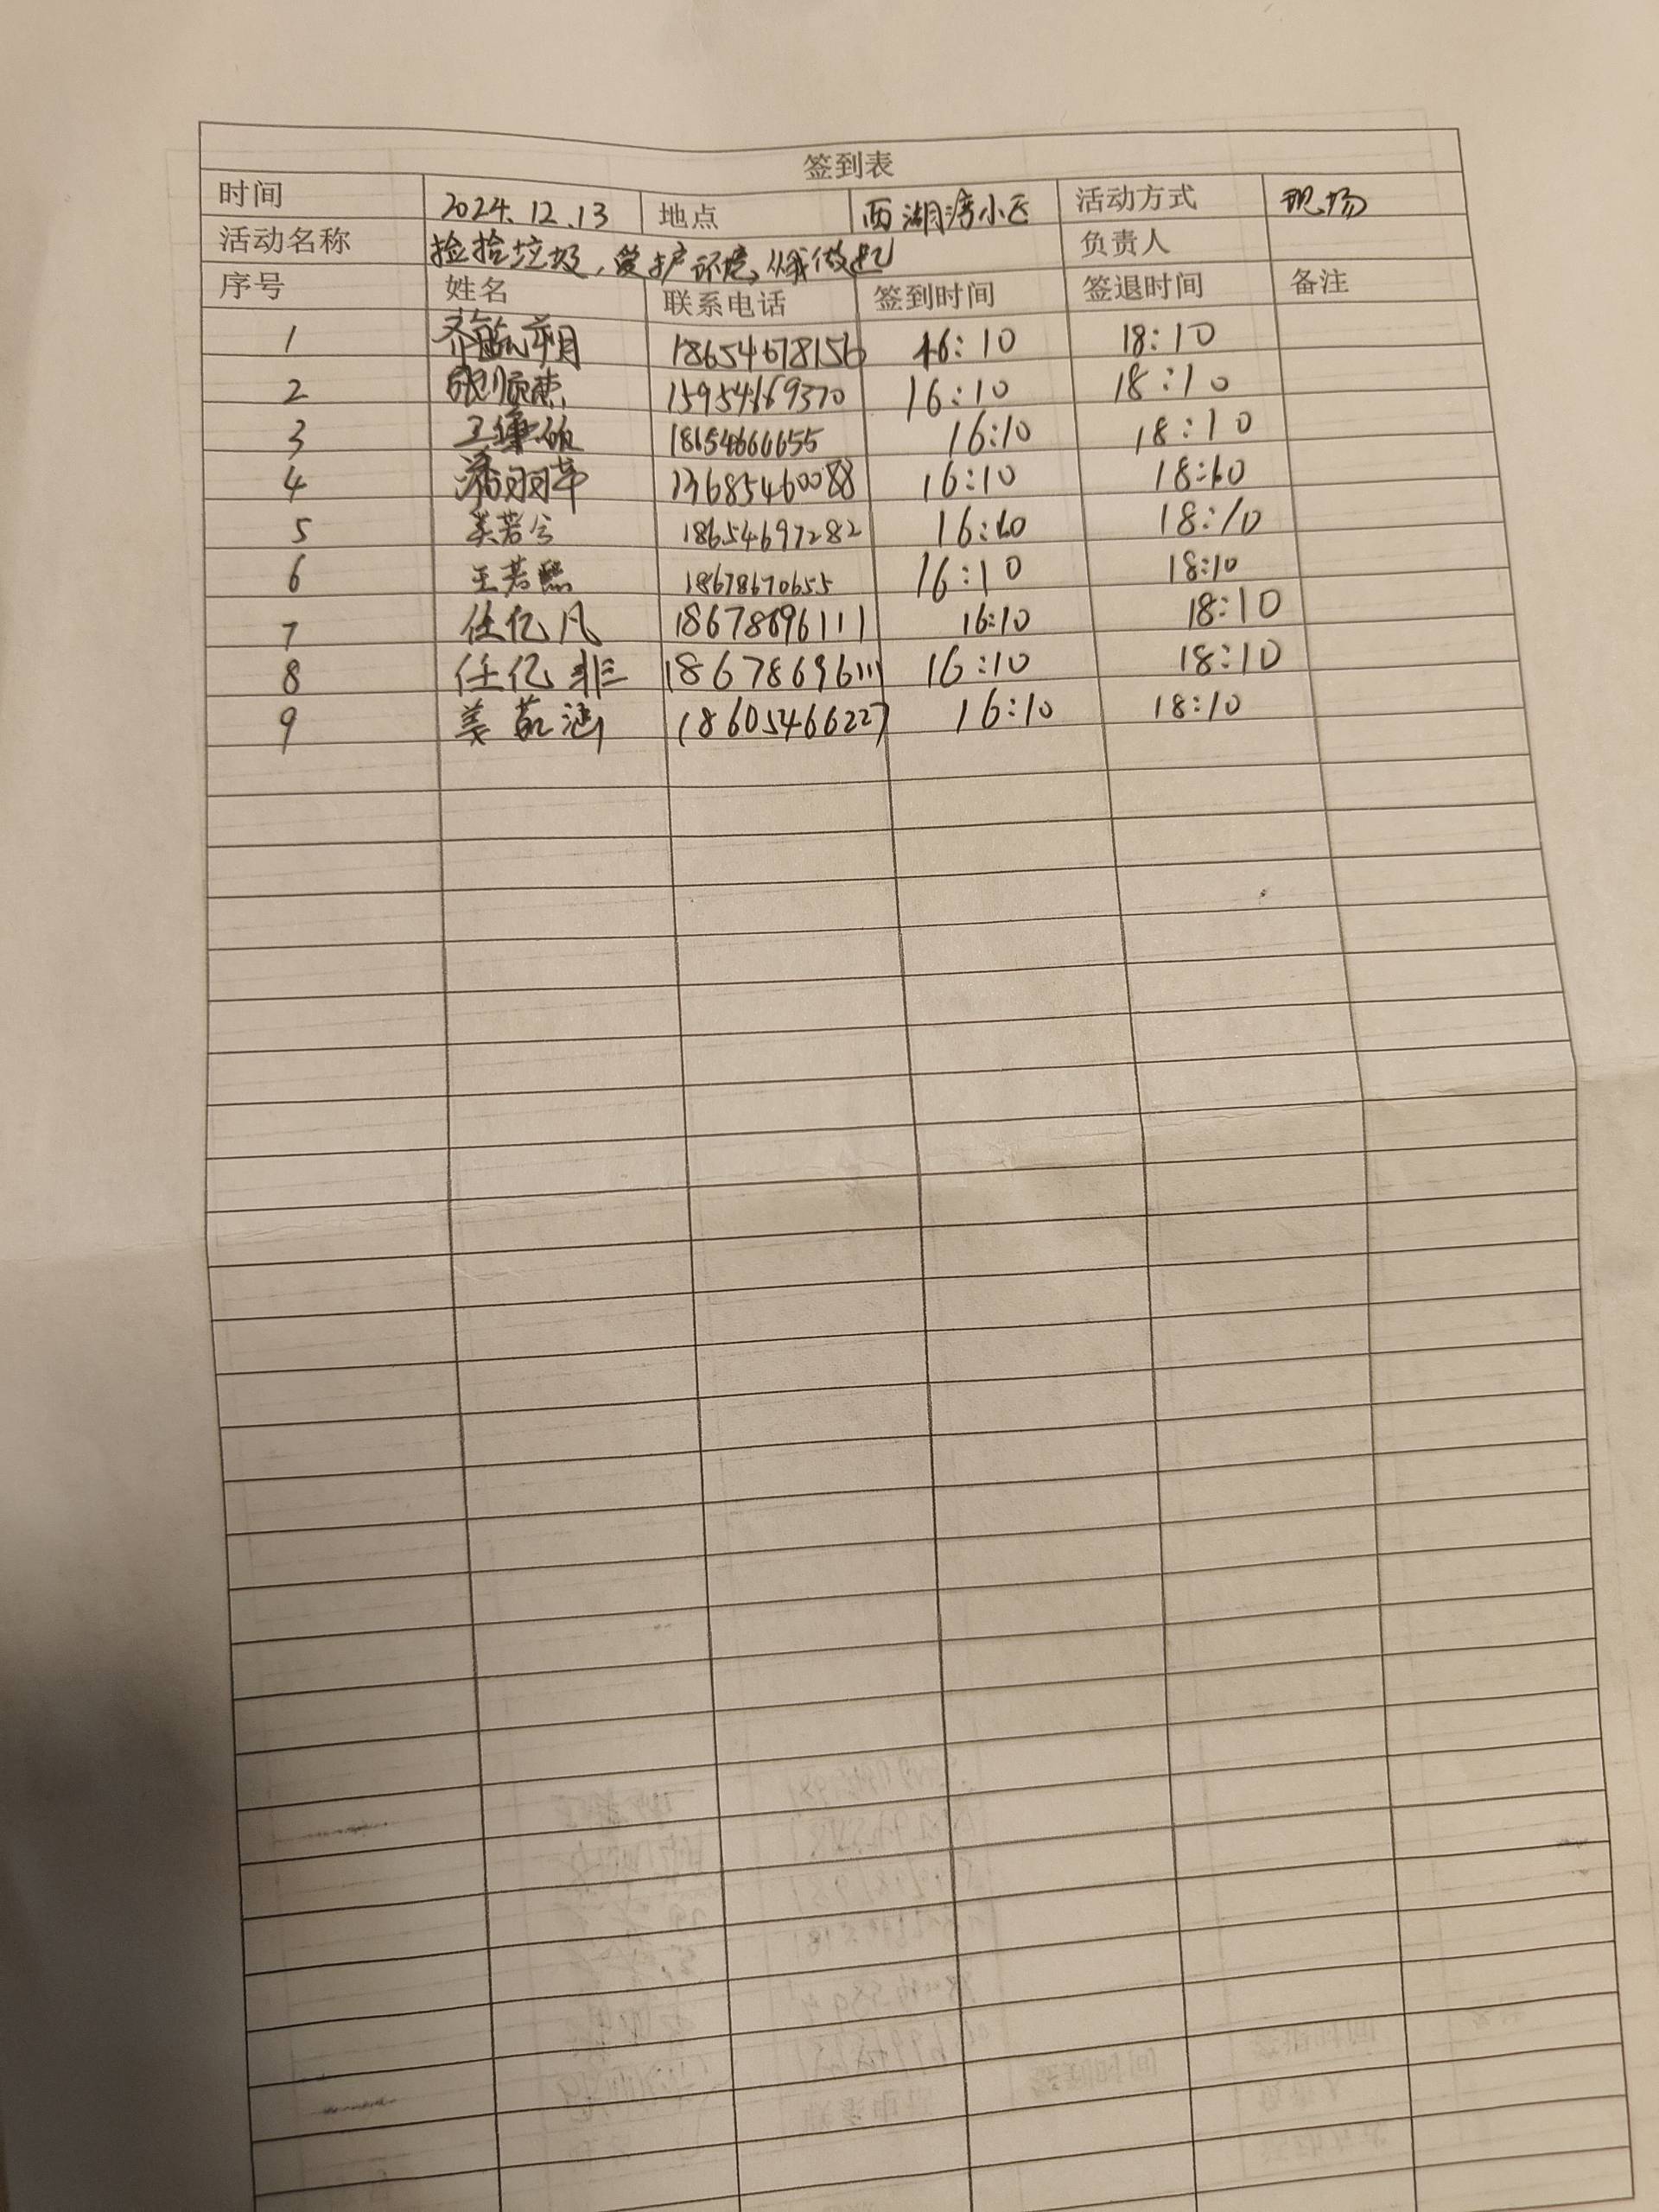 签到表
时间 2024.12.13 地点 西湖湾小区 活动方式 现场
活动名称 捡拾垃圾,爱护环境,从我做起 负责人
序号 姓名 联系电话 签到时间 签退时间 备注
1 18654678156 16:10 18:10
2 15954669370 16:10 18:10
3 18654666655 16:10 18:10
4 潘羽苹 13685460088 16:10 18:10
5 若兮 18654697282 16:10 18:10
6 王若熙 18678670655 16:10 18:10
7 任亿凡 18678696111 16:10 18:10
8 任亿非 18678696111 16:10 18:10
9 姜茹涵 18605466227 16:10 18:10